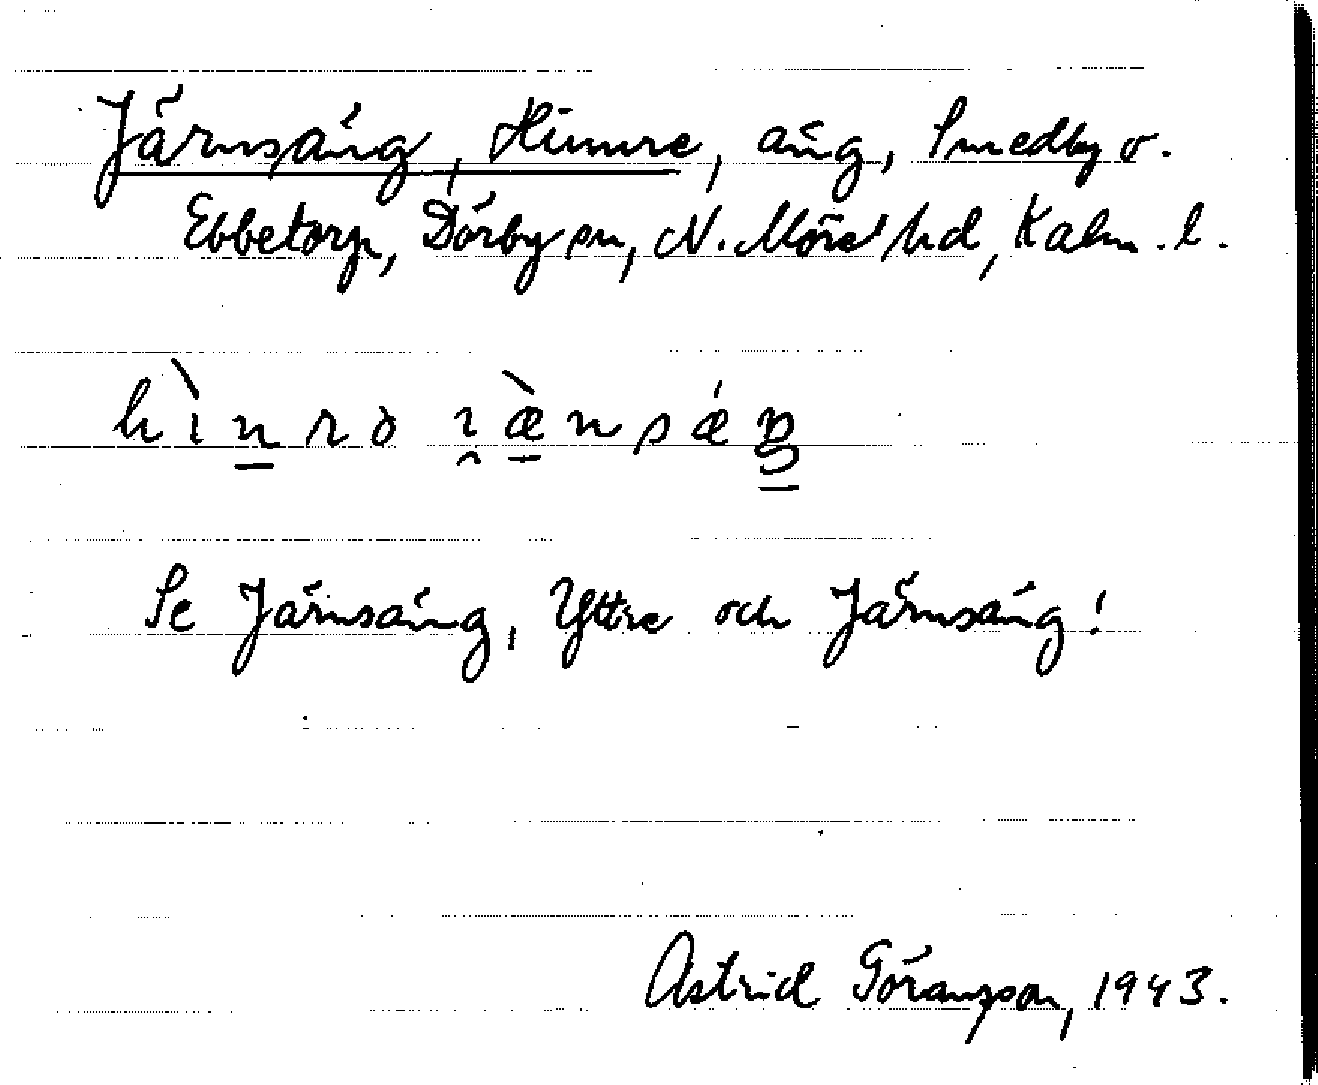 Järnsäng, Hinnre, äng, Smedby o.
Ebbetorp, Dörby sn, N. Möre hd, Kalm. l.
hìnrə i̯æ̀nsǽŋ
Se Järnsäng, Yttre och Järnsäng!
Astrid Göransson, 1943.